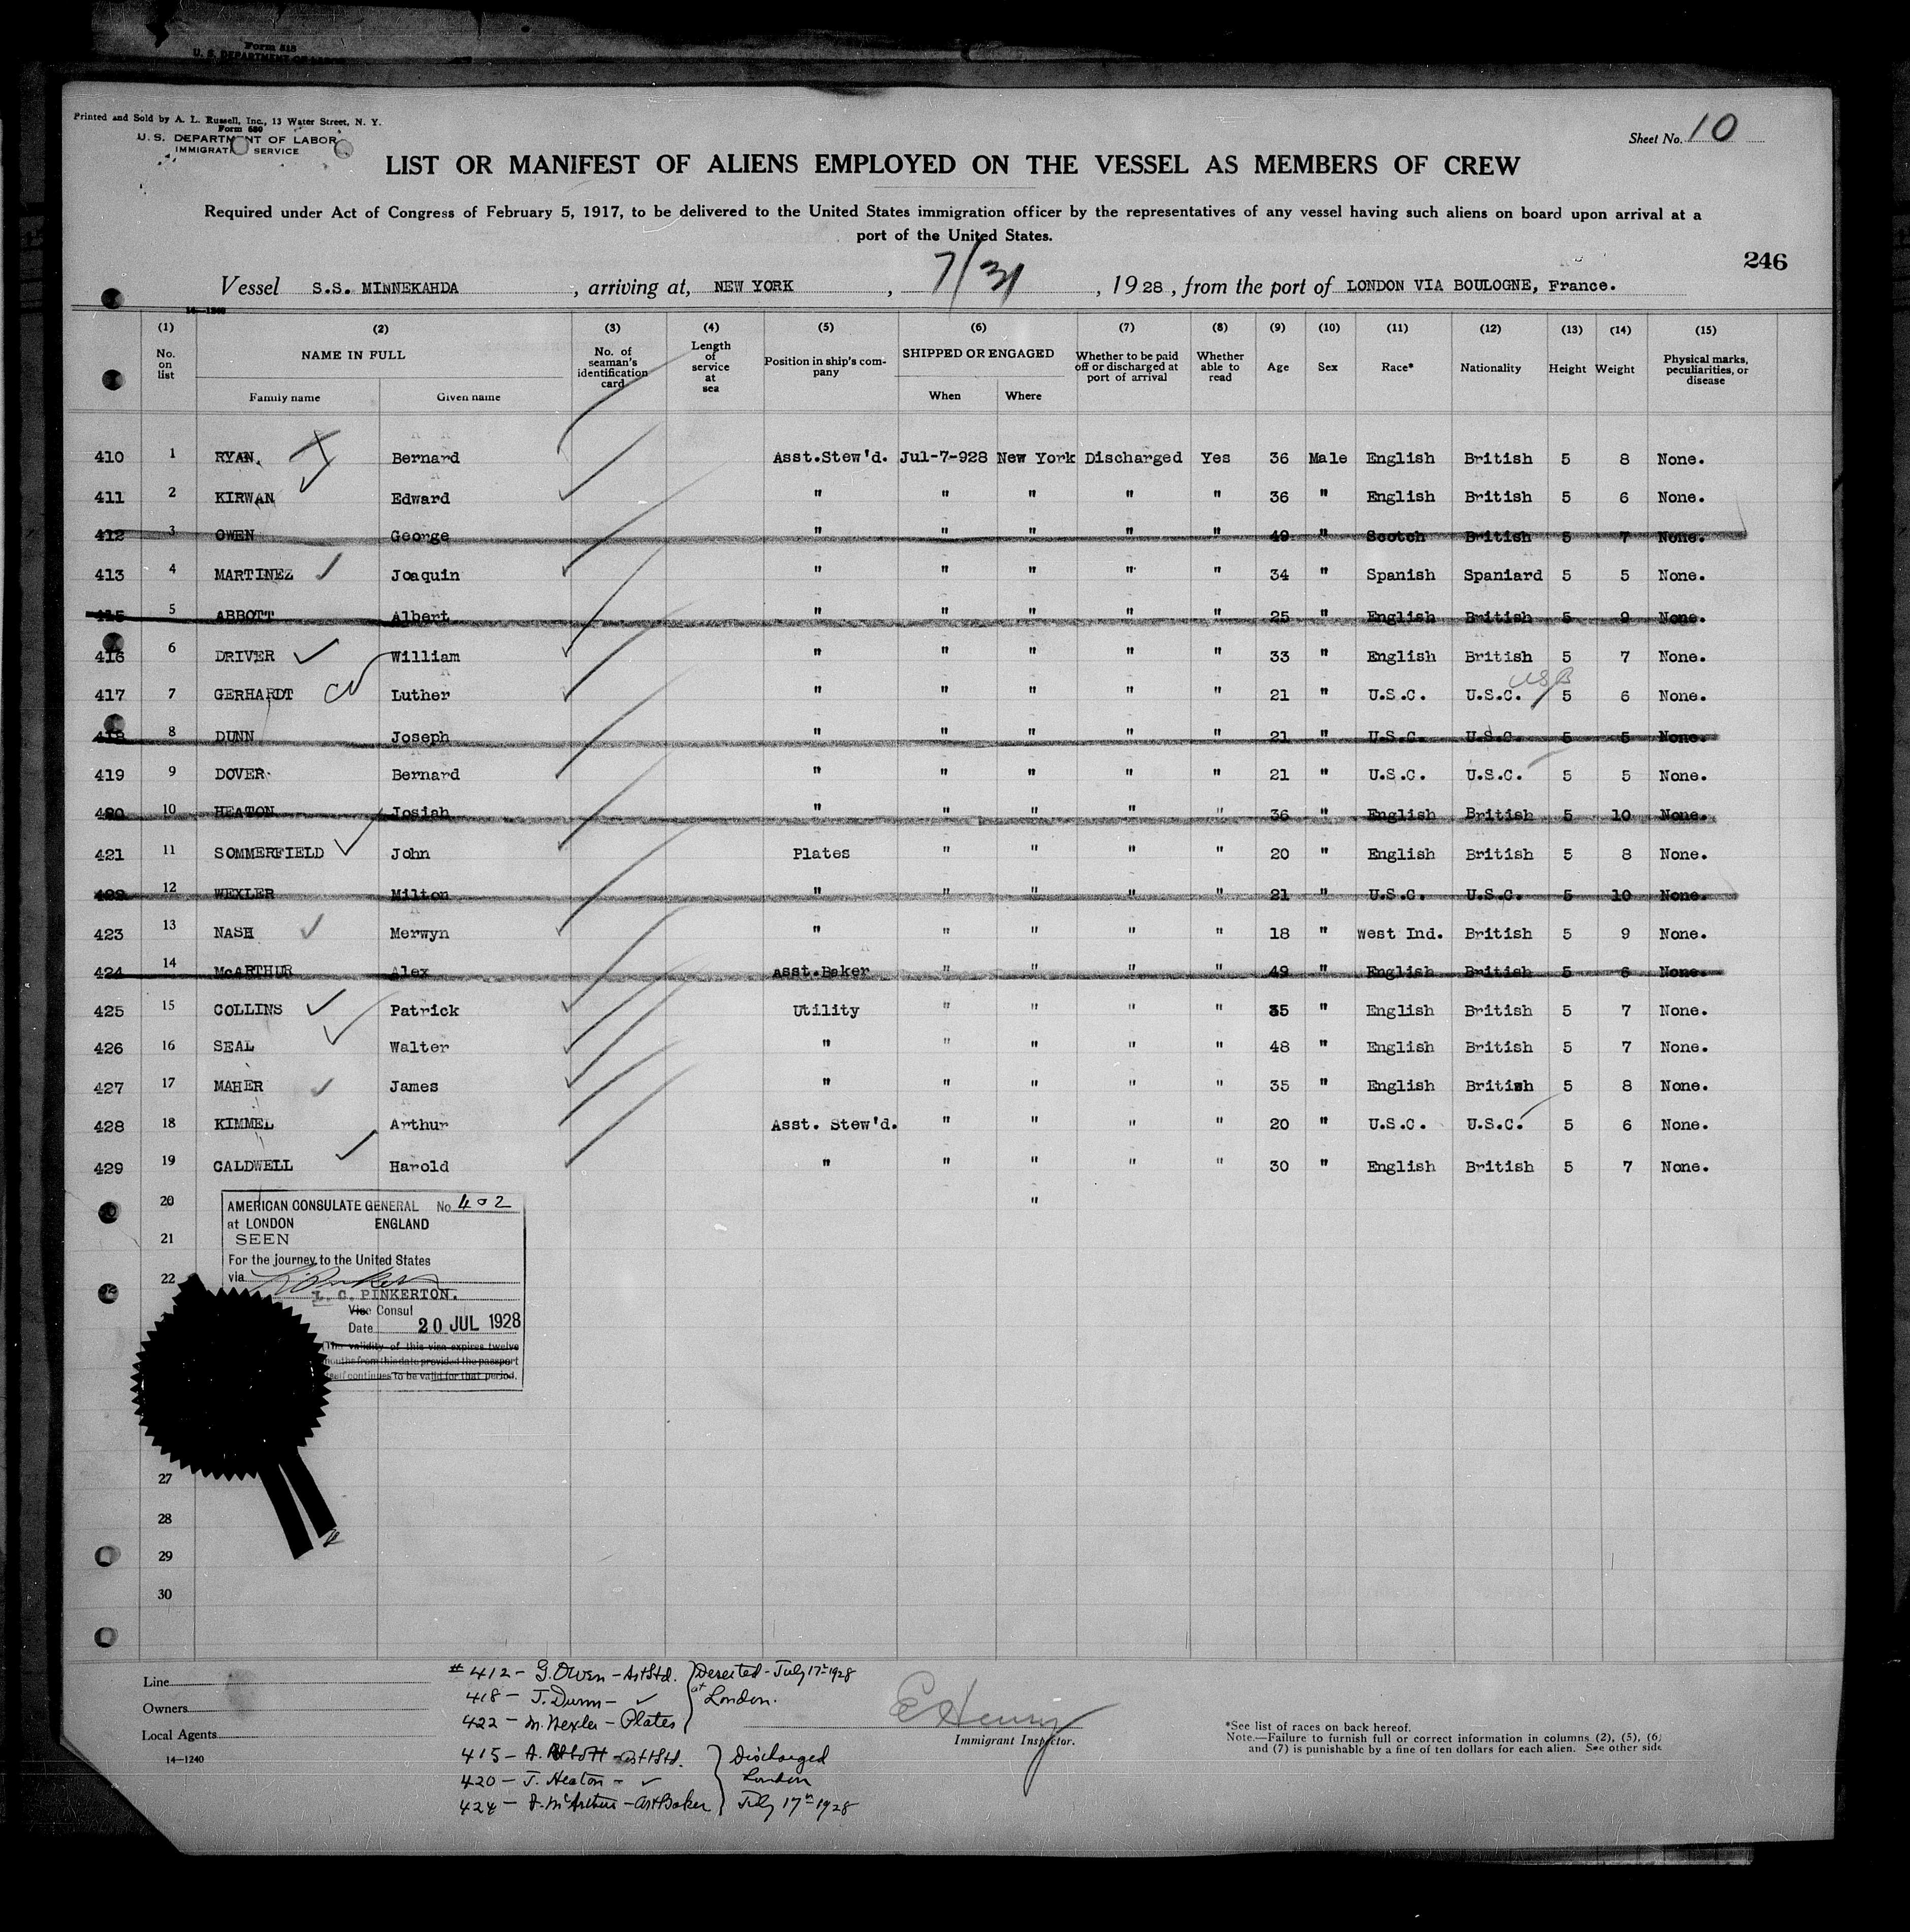 Form 618
U. S. DEPARTMENT OF LABOR
Printed and Sold by A. L. Russell, Inc., 13 Water Street, N. Y.
Form 680
U. S. DEPARTMENT OF LABOR
IMMIGRATION SERVICE
Sheet No. 10
LIST OR MANIFEST OF ALIENS EMPLOYED ON THE VESSEL AS MEMBERS OF CREW
Required under Act of Congress of February 5, 1917, to be delivered to the United States immigration officer by the representatives of any vessel having such aliens on board upon arrival at a
port of the United States.
246
Vessel S.S. MINNEKAHDA, arriving at, NEW YORK, 7/31, 1928, from the port of LONDON VIA BOULOGNE, France.
14—1240
(1) (2) (3) (4) (5) (6) (7) (8) (9) (10) (11) (12) (13) (14) (15)
No. on list NAME IN FULL No. of seaman's identification card Length of service at sea Position in ship's company SHIPPED OR ENGAGED Whether to be paid off or discharged at port of arrival Whether able to read Age Sex Race* Nationality Height Weight Physical marks, peculiarities, or disease
Family name Given name When Where
410 1 RYAN, Bernard Asst.Stew'd. Jul-7-928 New York Discharged Yes 36 Male English British 5 8 None.
411 2 KIRWAN Edward " " " " " 36 " English British 5 6 None.
412 3 OWEN George " " " " " 49 " Scotch British 5 7 None.
413 4 MARTINEZ Joaquin " " " " " 34 " Spanish Spaniard 5 5 None.
415 5 ABBOTT Albert " " " " " 25 " English British 5 9 None.
416 6 DRIVER William " " " " " 33 " English British 5 7 None.
417 7 GERHARDT Luther " " " " " 21 " U.S.C. U.S.C. 5 6 None.
418 8 DUNN Joseph " " " " " 21 " U.S.C. U.S.C. 5 5 None.
419 9 DOVER Bernard " " " " " 21 " U.S.C. U.S.C. 5 5 None.
420 10 HEATON Josiah " " " " " 36 " English British 5 10 None.
421 11 SOMMERFIELD John Plates " " " " 20 " English British 5 8 None.
422 12 WEXLER Milton " " " " " 21 " U.S.C. U.S.C. 5 10 None.
423 13 NASH Merwyn " " " " " 18 " West Ind. British 5 9 None.
424 14 McARTHUR Alex Asst.Baker " " " " 49 " English British 5 6 None.
425 15 COLLINS Patrick Utility " " " " 35 " English British 5 7 None.
426 16 SEAL Walter " " " " " 48 " English British 5 7 None.
427 17 MAHER James " " " " " 35 " English British 5 8 None.
428 18 KIMMEL Arthur Asst. Stew'd. " " " " 20 " U.S.C. U.S.C. 5 6 None.
429 19 CALDWELL Harold " " " " " 30 " English British 5 7 None.
20 "
21
22
27
28
29
30
AMERICAN CONSULATE GENERAL No. 402
at LONDON ENGLAND
SEEN
For the journey to the United States
via
L. C. PINKERTON.
Vice Consul
Date 20 JUL 1928
(The validity of this visa expires twelve
months from this date provided the passport
itself continues to be valid for that period.
Line
Owners
Local Agents
14—1240
# 412 — G. Owen — Ast Std. Deserted - July 17th 1928
418 — J. Dunn — ✓ at London.
422 — M. Wexler — Plates
415 — A. Abbott — Ast Std. Discharged
420 — J. Heaton — ✓ London
424 — A. McArthur — Ast Baker July 17th 1928
E Henry
Immigrant Inspector.
*See list of races on back hereof.
Note.—Failure to furnish full or correct information in columns (2), (5), (6)
and (7) is punishable by a fine of ten dollars for each alien. See other side